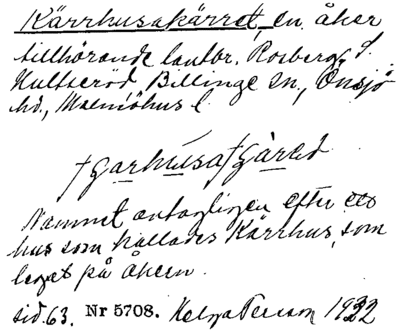 Kärrhusakärret, en åker
tillhörande lantbr. Rosberg,
Hultseröd Billinge sn., Onsjö
hd., Malmöhus l
Namnet antagligen efter ett
hus som kallades Kärrhus, som
legat på åkern.
sid. 63. Nr 5708. Helga Persson 1932